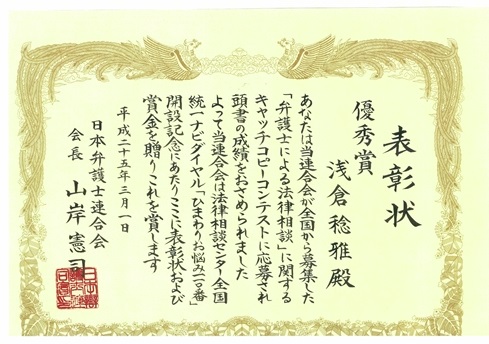 表彰状
優秀賞
浅倓稔雅殿
あなたは当連合会が全国から募集した
「弁護士による法律相談」に関する
キャッチコピーコンテストに応募され
頭書の成績をおさめられました
よって当連合会は法律相談センター全国
統一ナビダイヤル「ひまわりお悩み一一〇番」
開設記念にあたりここに表彰状および
賞金を贈りこれを賞します
平成二十五年三月一日
日本弁護士連合会
会長 山岸憲司